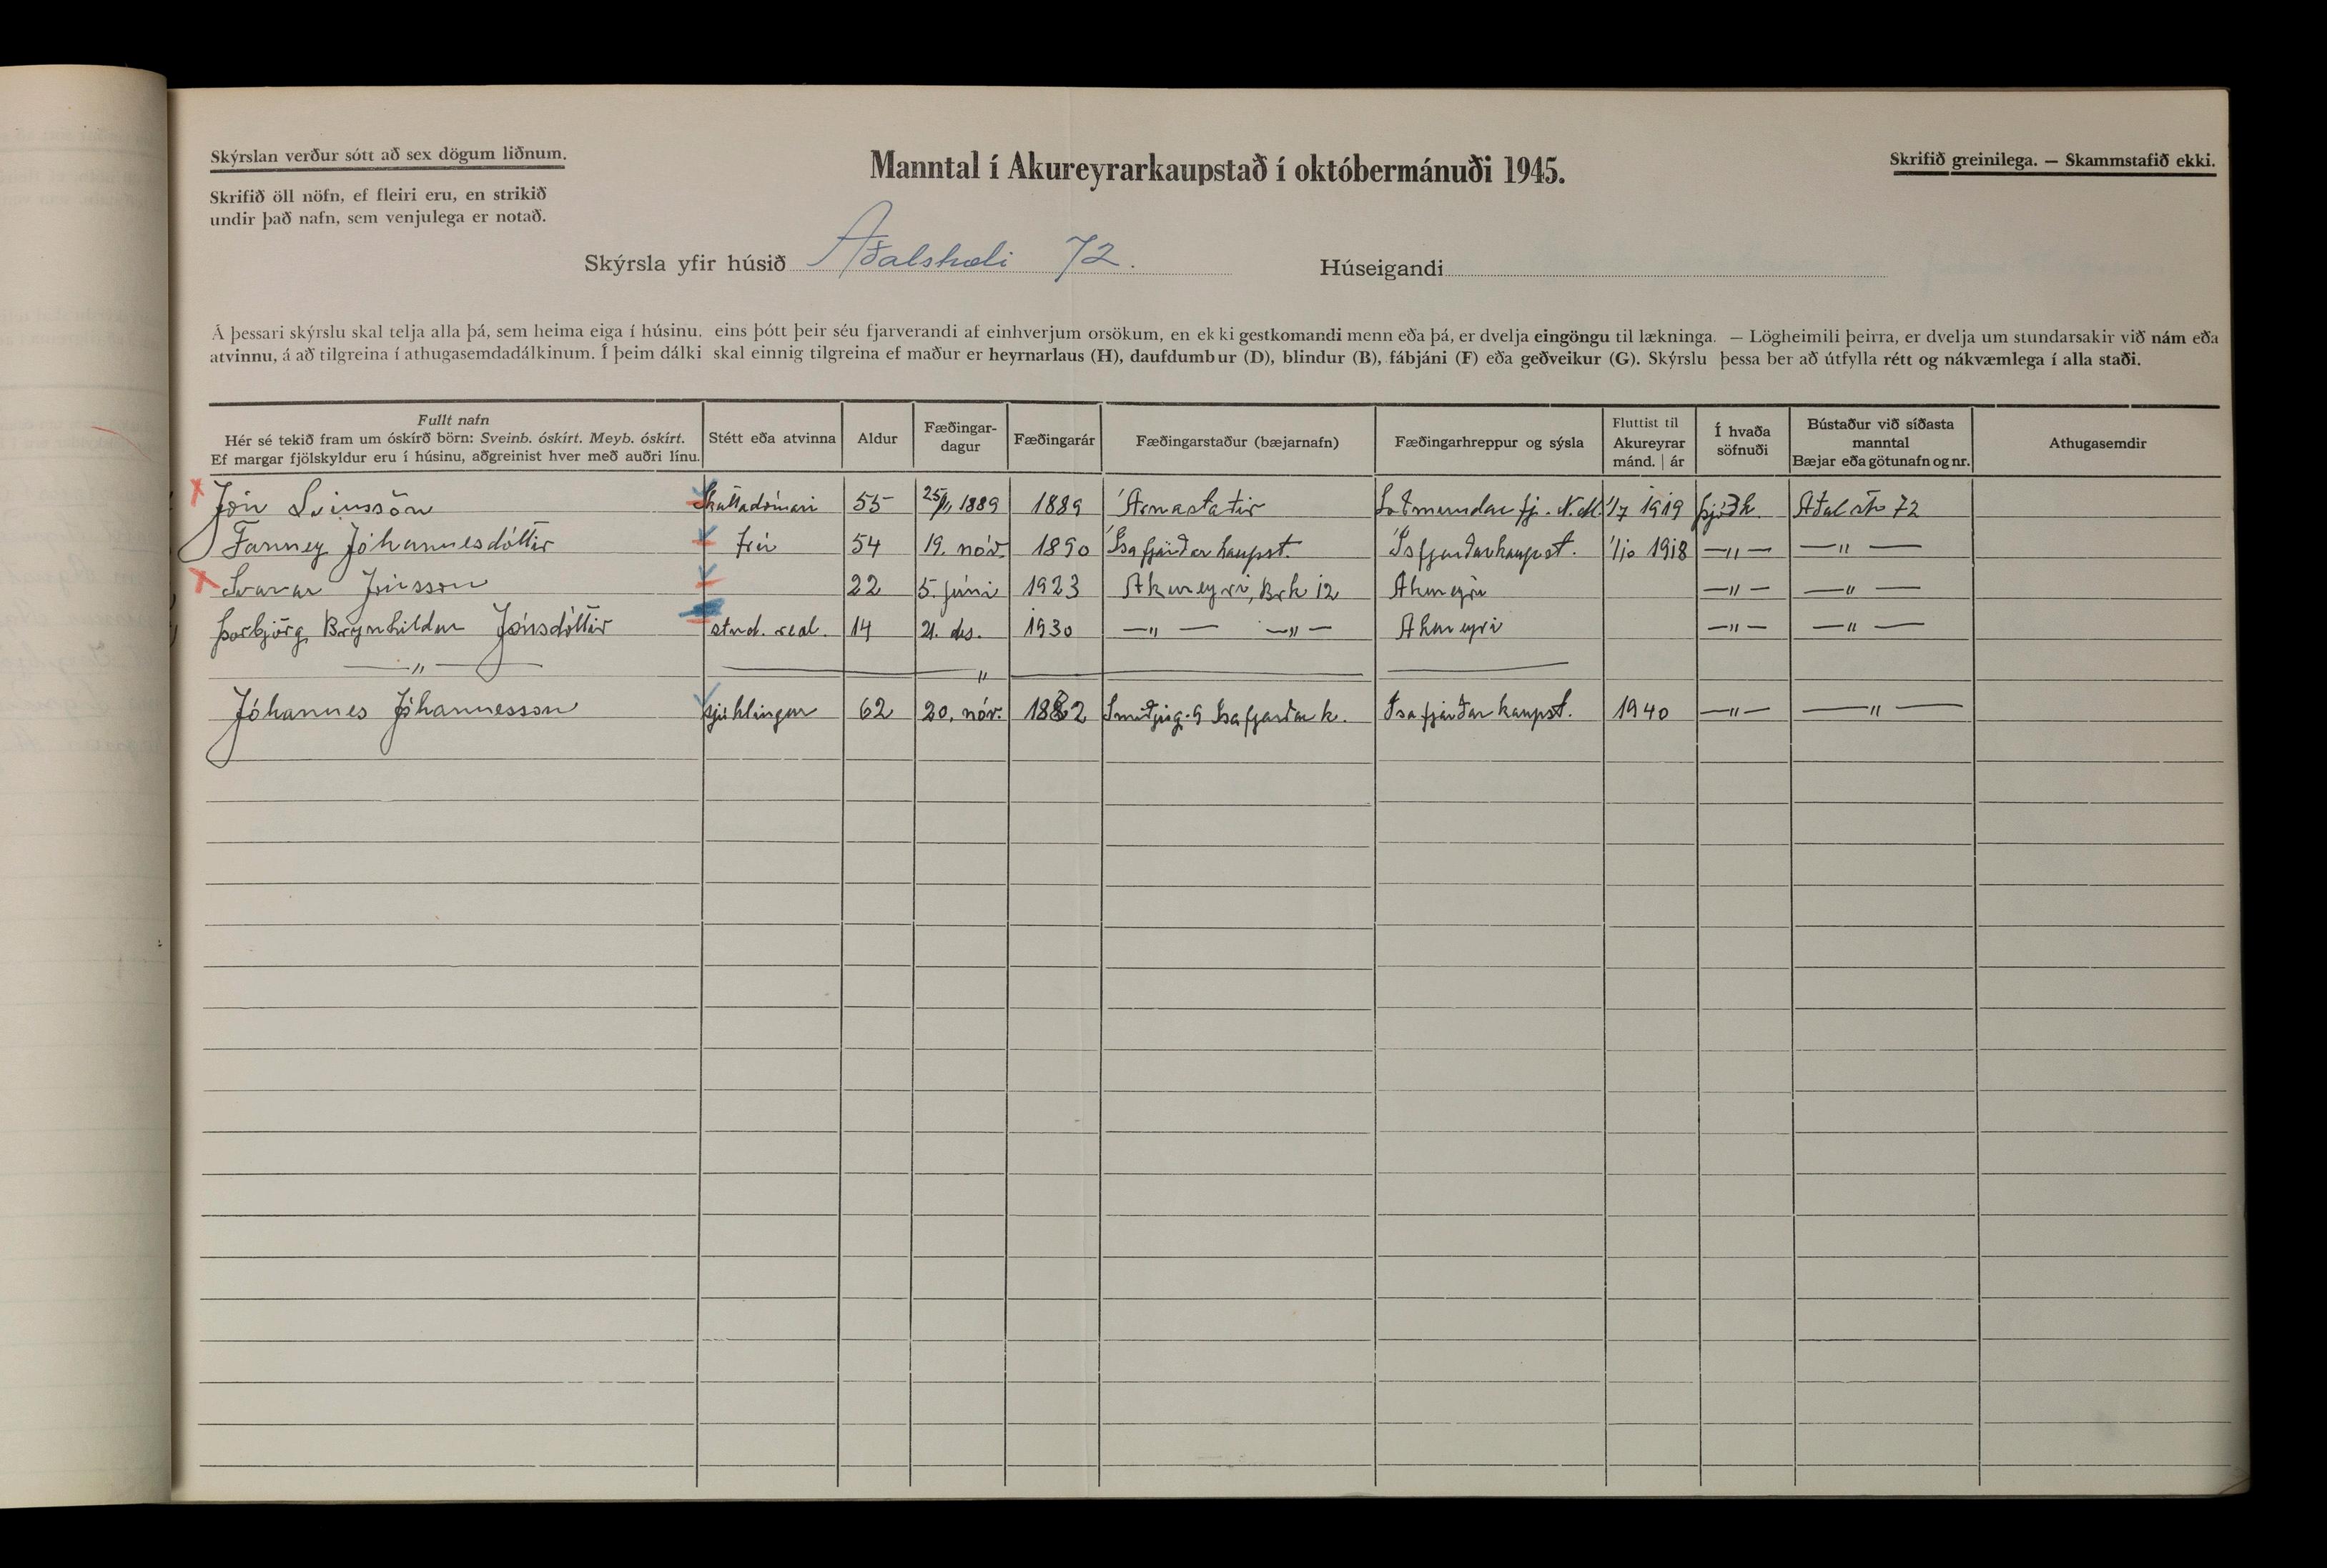 Skýrslan verður sótt að sex dögum liðnum.
Skrifið öll nöfn, ef fleiri eru, en strikið
undir það nafn, sem venjulega er notað.
Manntal í Akureyrarkaupstað í októbermánuði 1945.
Skrifið greinilega. — Skammstafið ekki.
Skýrsla yfir húsið Aðalstræti 72. Húseigandi
Á þessari skýrslu skal telja alla þá, sem heima eiga í húsinu, eins þótt þeir séu fjarverandi af einhverjum orsökum, en ekki gestkomandi menn eða þá, er dvelja eingöngu til lækninga. — Lögheimili þeirra, er dvelja um stundarsakir við nám eða
atvinnu, á að tilgreina í athugasemdadálkinum. Í þeim dálki skal einnig tilgreina ef maður er heyrnarlaus (H), daufdumbur (D), blindur (B), fábjáni (F) eða geðveikur (G). Skýrslu þessa ber að útfylla rétt og nákvæmlega í alla staði.
Fullt nafn
Hér sé tekið fram um óskírð börn: Sveinb. óskírt. Meyb. óskírt.
Ef margar fjölskyldur eru í húsinu, aðgreinist hver með auðri línu.
Stétt eða atvinna
Aldur
Fæðingar-
dagur
Fæðingarár
Fæðingarstaður (bæjarnafn)
Fæðingarhreppur og sýsla
Fluttist til
Akureyrar
mánd. | ár
Í hvaða
söfnuði
Bústaður við síðasta
manntal
Bæjar eða götunafn og nr.
Athugasemdir
Jón 55 1889 1889 Árnastaðir Loðmundarfj. N.M. 1/7 1919 þjóðk. Aðalstr 72
Fanney Jóhannesdóttir frú 54 19. nóv. 1890 Ísafjarðarkaupst. Ísfjarðarkaupst. 1/10 1918 —"— —"—
Svavar Jónsson 22 5. júní 1923 Akureyri, Brk 12 Akureyri —"— —"—
Þorbjörg Brynhildur Jónsdóttir stud. real. 14 21. des. 1930 —"— —"— Akureyri —"— —"—
—"— "
Jóhannes Jóhannesson sjúklingur 62 20. nóv. 1882 Smiðjug. 9 Ísafjarðark. Ísafjarðarkaupst. 1940 —"— —"—